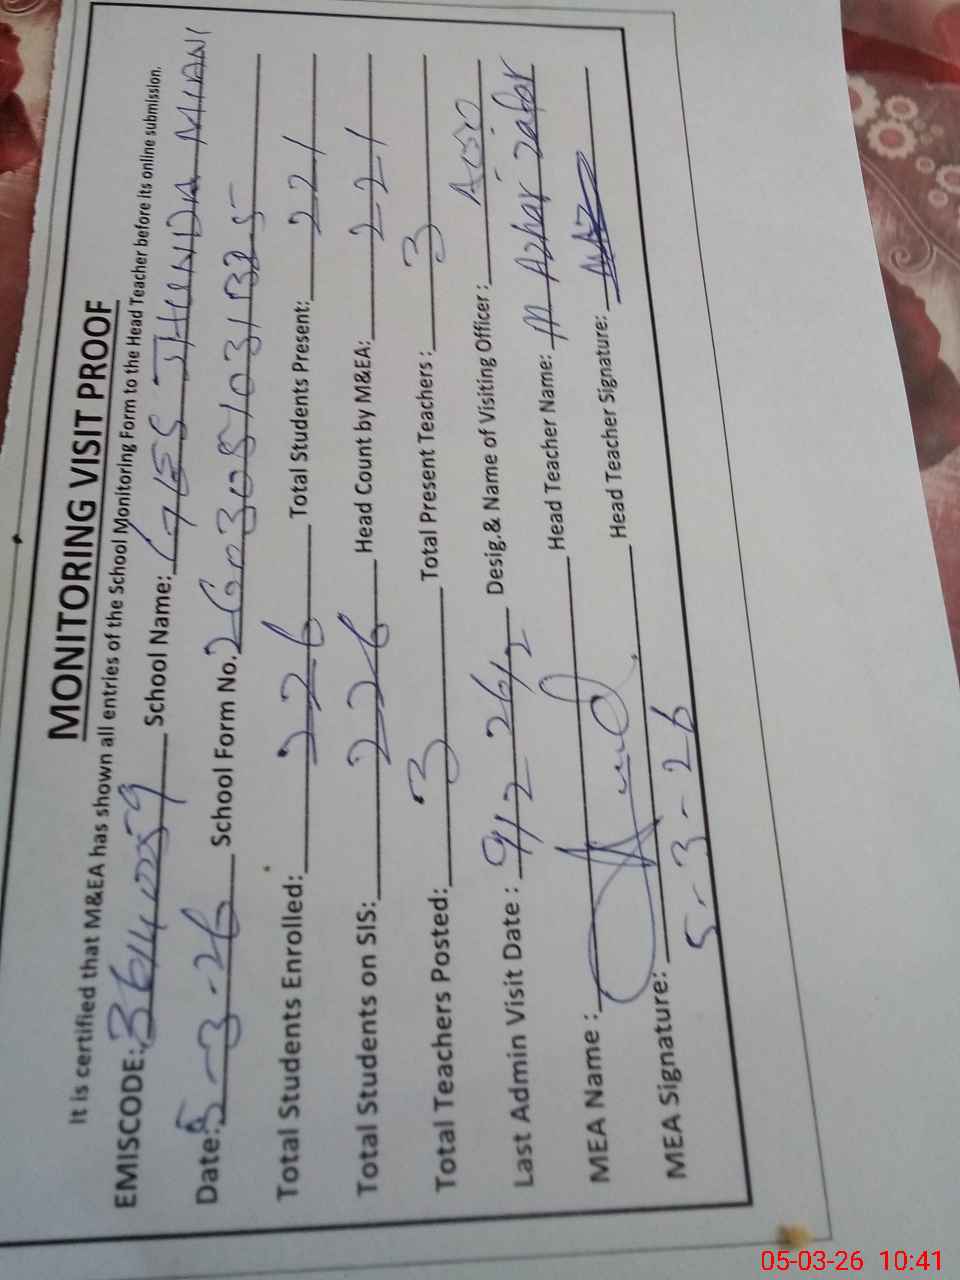 MONITORING VISIT PROOF
It is certified that M&EA has shown all entries of the School Monitoring Form to the Head Teacher before its online submission.
EMISCODE: School Name: JHINDA MIANI
Date: 5-3-26 School Form No.
Total Students Enrolled: 226 Total Students Present: 221
Total Students on SIS: 226 Head Count by M&EA: 221
Total Teachers Posted: 3 Total Present Teachers: 3
Last Admin Visit Date: Desig.& Name of Visiting Officer:
MEA Name: Head Teacher Name: M Azhar Zafar
MEA Signature: Head Teacher Signature:
5-3-26
05-03-26 10:41